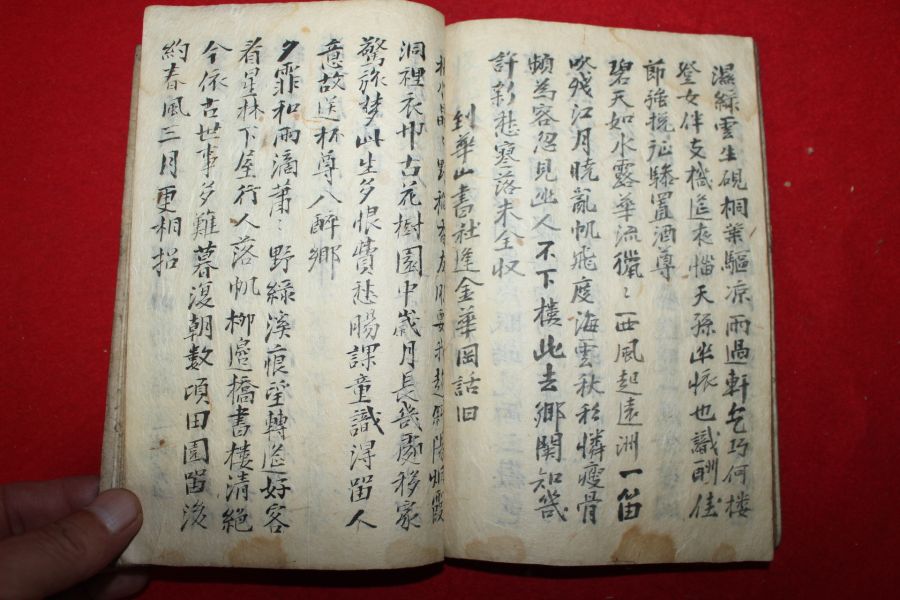 濕綠雲生硯桐葉驅凉雨過軒乞巧何樓
登女伴支機這夜惱天孫坐恢也識酬佳
節強挽征驂置酒尊
碧天如水露華流獵〻西風起遠洲一笛
吹殘江月曉亂帆飛度海雲秋私憐瘦骨
頻為容忽見幽人不下樓此去鄉関知幾
許新愁寒落未全収
到華山書社逢金華岡話旧
洞裡衣巾古花樹園中歲月長幾處移家
驚旅梦此生多恨費愁腸課童識得留人
意故送杯尊入醉鄉
夕霏和雨滴蕭〻野綠溪痕望轉遙好客
着星林下屋行人落帆柳邊橋書樓清絶
今依古世事多難暮復朝數頃田園留後
約春風三月更相招